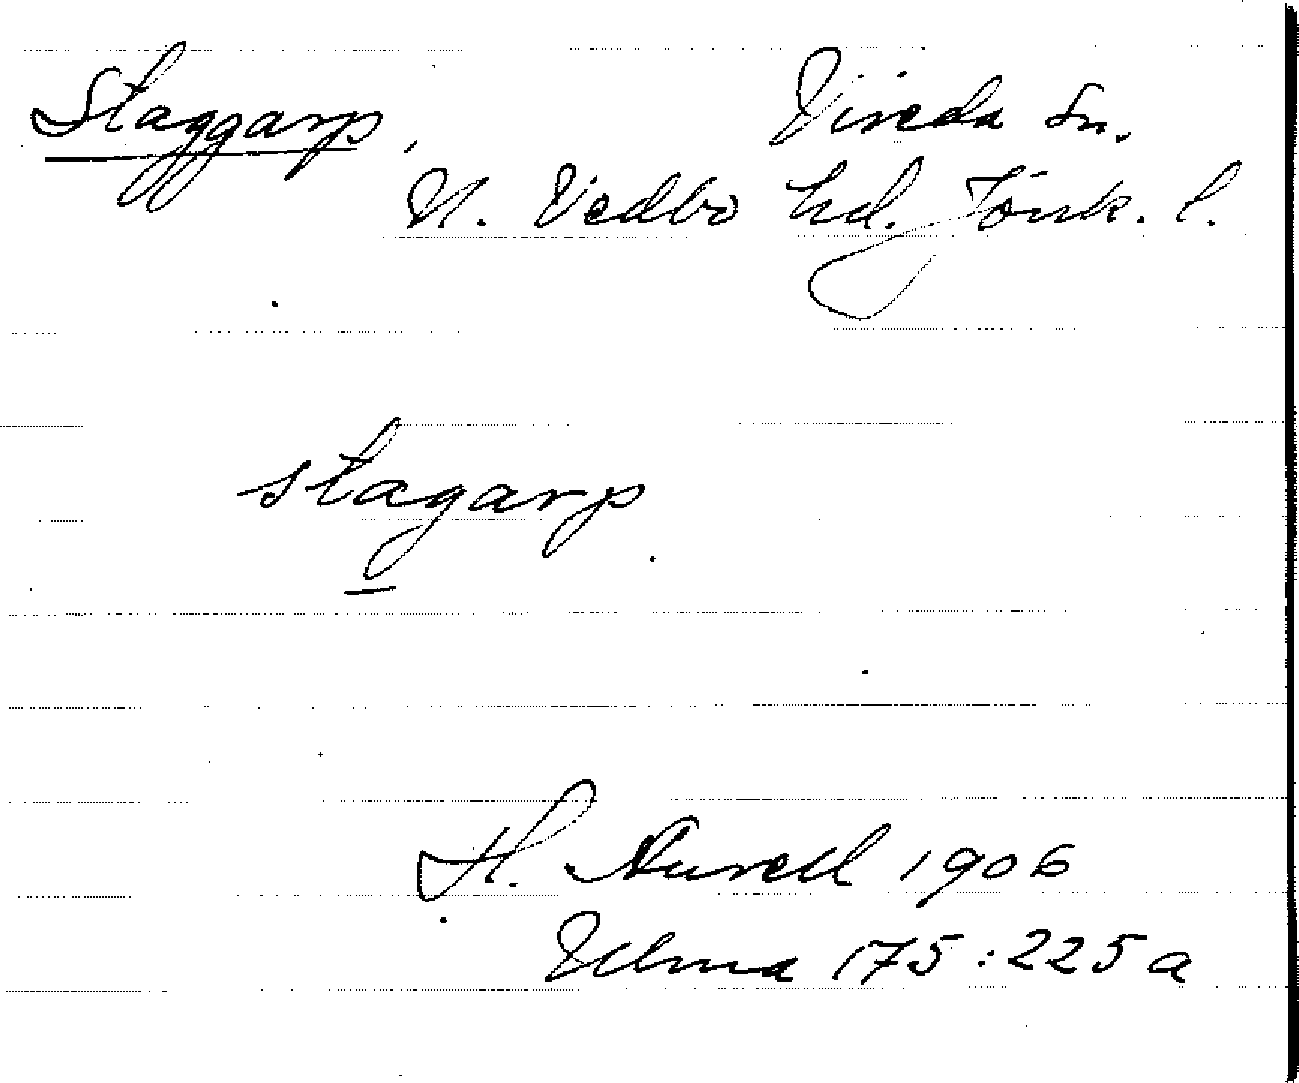 Staggarp, Vireda Sn.
N. Vedbo hd. Jönk. l.
stagarp
H. Aurell 1906
Ulma 175:225a